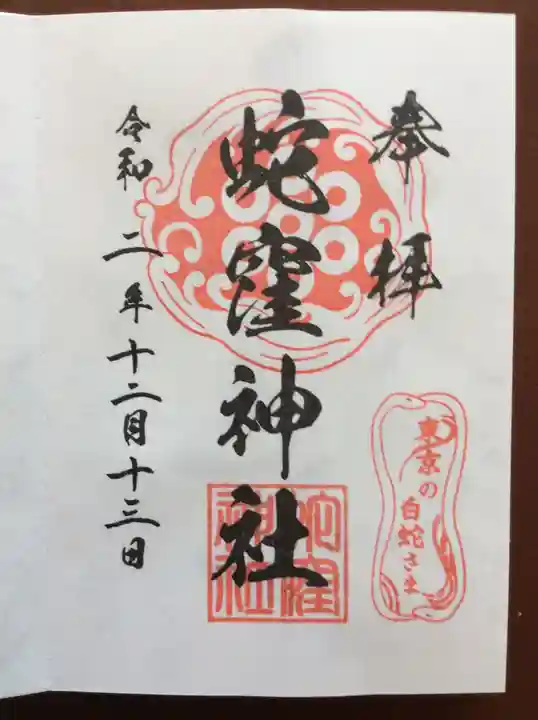 奉拝
東京の白蛇さま
蛇窪神社
蛇窪神社
令和二年十二月十三日